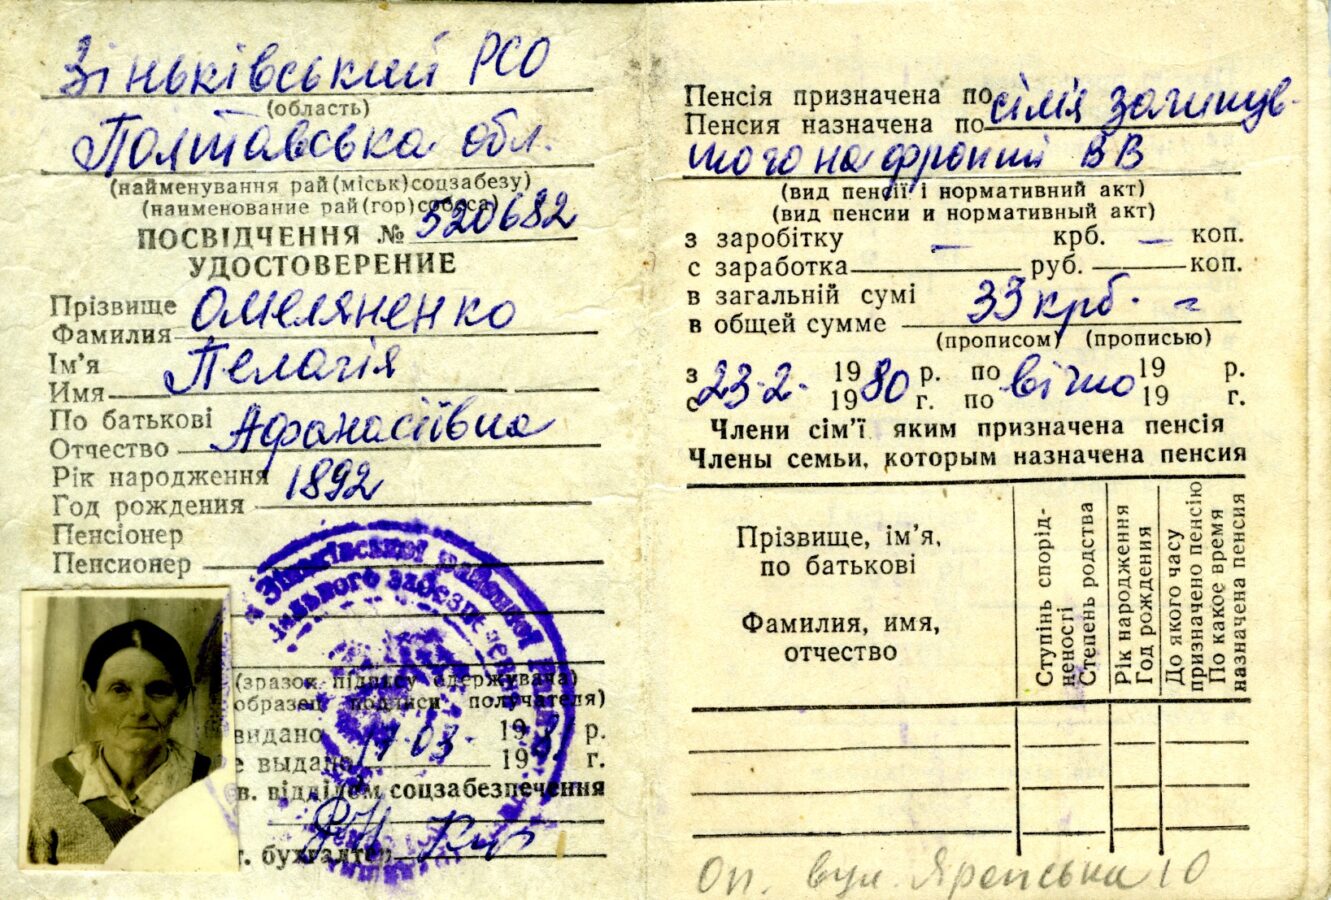 Зіньківський РСО
(область)
Полтавська обл.
(найменування рай(міськ)соцзабезу)
(наименование рай(гор)собеса)
ПОСВІДЧЕННЯ № 520682
УДОСТОВЕРЕНИЕ
Прізвище Омеляненко
Фамилия
Ім'я Пелагія
Имя
По батькові Афанасіївна
Отчество
Рік народження 1892
Год рождения
Пенсіонер
Пенсионер
Зіньківської районної
забезпечення
(зразок підпису одержувача)
образец подписи получателя)
видано 19 р.
е выдано 03 19 г.
в. відділом соцзабезпечення
г. бухгалтер
Пенсія призначена по сім'я загинув-
Пенсия назначена по
шого на фронті ВВ
(вид пенсії і нормативний акт)
(вид пенсии и нормативный акт)
з заробітку — крб. — коп.
с заработка руб. коп.
в загальній сумі 33 крб. =
в общей сумме
(прописом) (прописью)
з 23.2. 1980 р. по вічно 19 р.
с 19 г. по 19 г.
Члени сім'ї, яким призначена пенсія
Члены семьи, которым назначена пенсия
Прізвище, ім'я,
по батькові
Фамилия, имя,
отчество
Ступінь спорід-
неності
Степень родства
Рік народження
Год рождения
До якого часу
призначено пенсію
По какое время
назначена пенсия
Оп. вул. Яреська 10